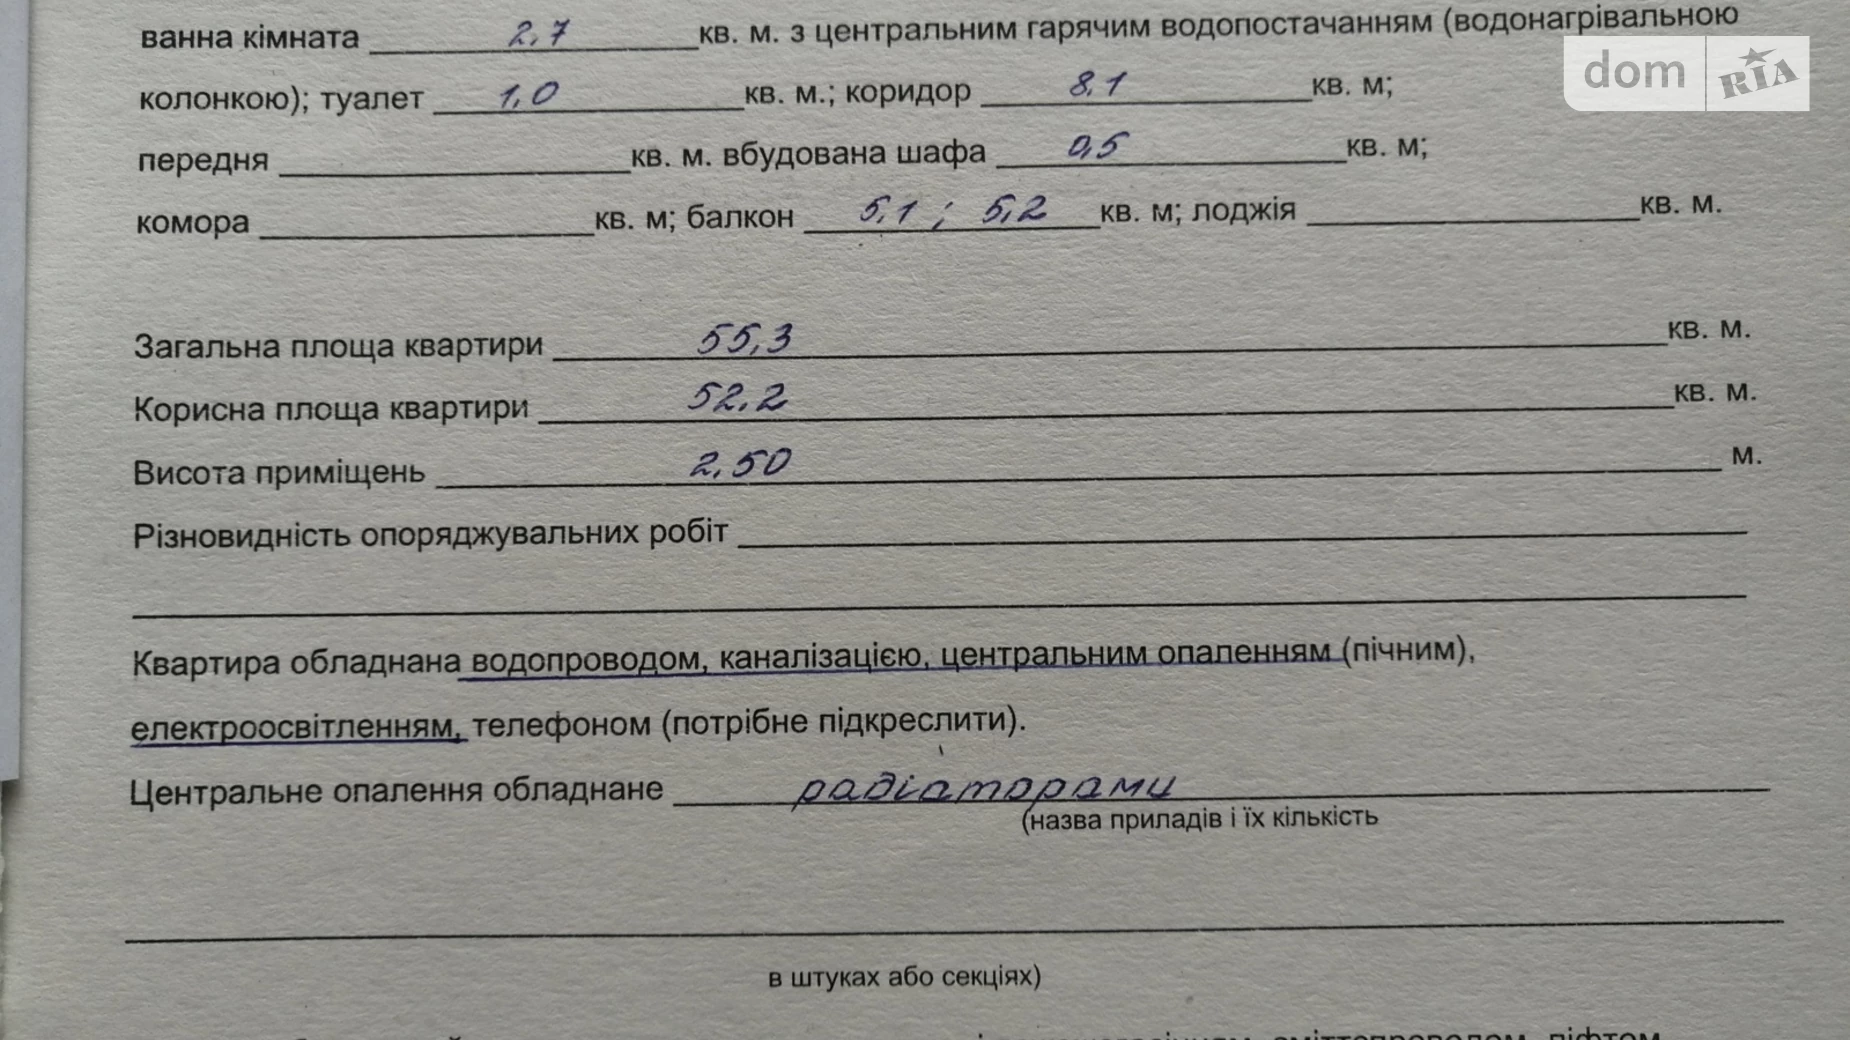 ванна кімната 2,7 кв. м. з центральним гарячим водопостачанням (водонагрівальною
dom RIA
колонкою); туалет 1,0 кв. м.; коридор 8,1 кв. м;
передня кв. м. вбудована шафа 0,5 кв. м;
комора кв. м; балкон 5,1 ; 5,2 кв. м; лоджія кв. м.
Загальна площа квартири 55,3 кв. м.
Корисна площа квартири 52,2 кв. м.
Висота приміщень 2,50 м.
Різновидність опоряджувальних робіт
Квартира обладнана водопроводом, каналізацією, центральним опаленням (пічним),
електроосвітленням, телефоном (потрібне підкреслити).
Центральне опалення обладнане радіаторами
(назва приладів і їх кількість
в штуках або секціях)
сміттєпроводом, ліфтом